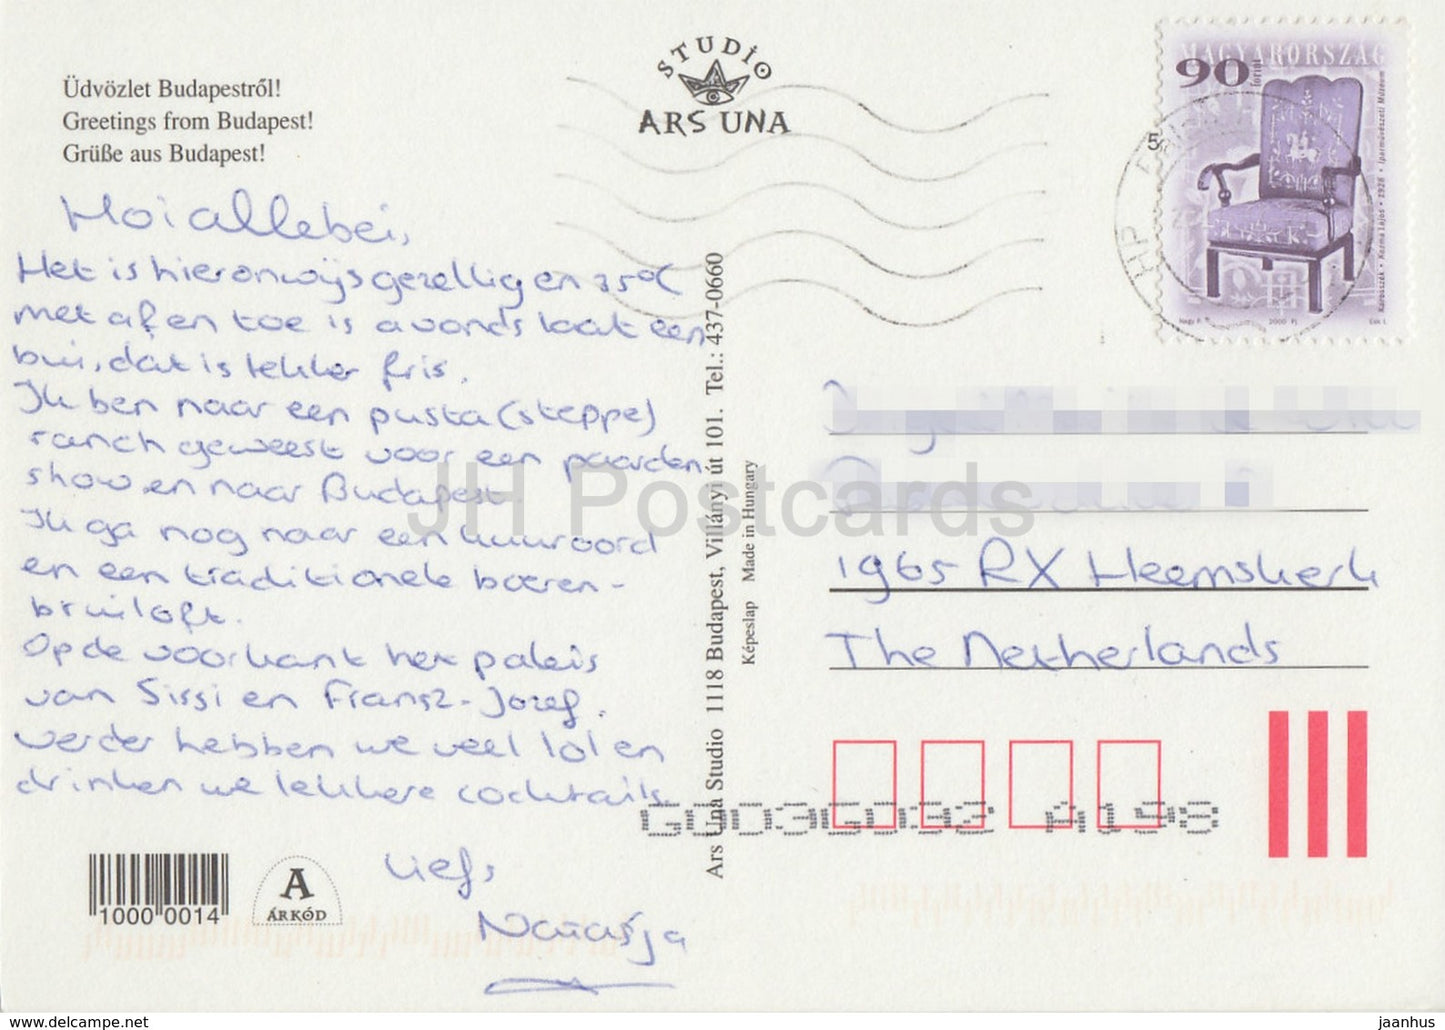 Üdvözlet Budapestről!
Greetings from Budapest!
Grüße aus Budapest!
STUDIO
ARS UNA
MAGYARORSZÁG
90
forint
Karosszék • Kozma Lajos • 1928 • Iparművészeti Múzeum
2000
Hoi allebei,
Het is hier onwijs gezellig en 35°C
met af en toe is avonds laat een
bui, dat is lekker fris.
Ik ben naar een pusta (steppe)
ranch geweest voor een paarden
show en naar Budapest.
Ik ga nog naar een kuuroord
en een traditionele boeren-
bruiloft.
Op de voorkant het paleis
van Sissi en Fransz-Jozef.
verder hebben we veel lol en
drinken we lekkere cocktails
Liefs
Natasja
Ars Una Studio 1118 Budapest, Villányi út 101. Tel.: 437-0660
Képeslap Made in Hungary
1965 RX Heemskerk
The Netherlands
A198
1000 0014
A
ÁRKÓD
JH Postcards
www.delcampe.net
jaanhus